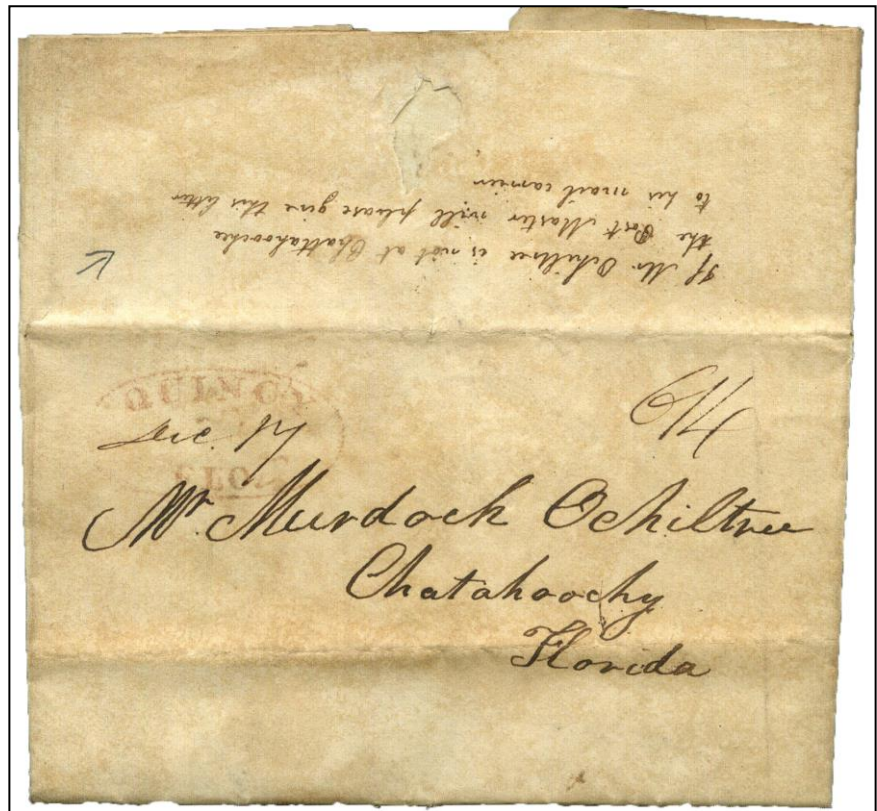 If Mr. Ochiltree is not at Chattahoochee
the Post Master will please give this letter
to his mail carrier
QUINCY
Dec. 17
FLO.
6¼
Mr. Murdoch Ochiltree
Chatahoochy
Florida